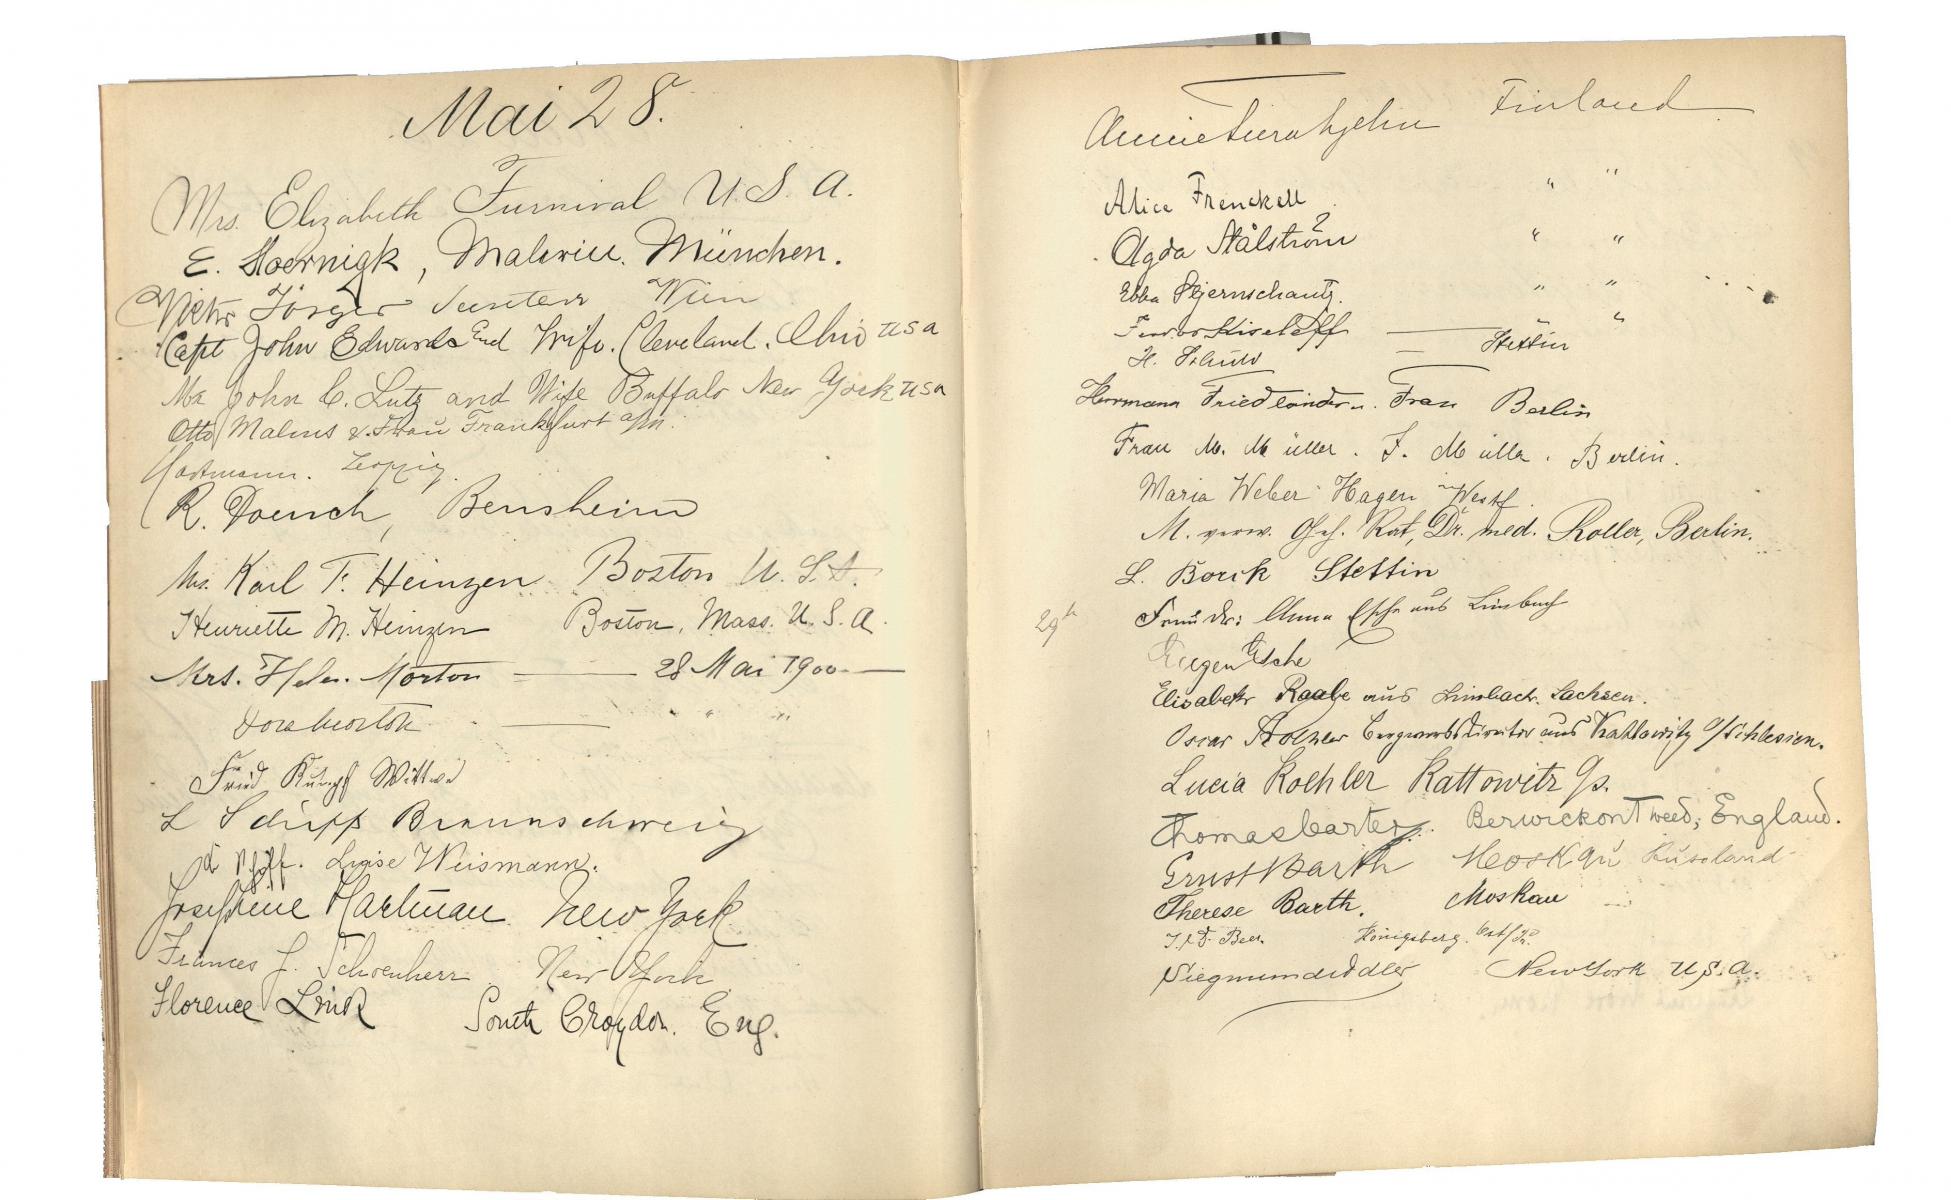 Mai 28.
Mrs. Elizabeth Furnival U. S. A.
E. Hoernigk, Malerin. München.
Victor Jörger Wien
Capt John Edwards End Wife. Cleveland. Ohio USA
Mr John C. Lutz and Wife Buffalo New York USA
Otto Malms & Frau Frankfurt a/M.
Hartmann. Leipzig.
R. Doench, Bensheim
Mrs. Karl F. Heinzen Boston U. S. A.
Henriette M. Heinzen Boston, Mass. U. S. A.
Mrs. Helen. Morton — 28 Mai 1900 —
Dora Morton — " "
Fried Wittwe
L Schiff Braunschweig
Luise Weismann.
Josephine Hartman New York
Frances J. Schoenherr New York
Florence Link South Croydon. Eng.
Finland
Alice Frenckell " "
Agda Stålström " "
Ebba Stjernschantz. " "
Kiseleff — "
H. — Stettin
Herrmann Friedländer u. Frau Berlin
Frau M. Müller. J. Müller. Berlin.
Maria Weber Hagen Westf.
M. verw. Geh. Rat, Dr. med. Roller, Berlin.
L. Borck Stettin
29th Frau Dr: Anna Esche aus Limbach
Eugen Esche
Elisabeth Raabe aus Limbach. Sachsen.
Oscar Koehler Bergwerksdirector aus Kattowitz O/Schlesien.
Lucia Koehler Kattowitz O/s.
Thomas Carter. Berwick on Tweed, England.
Ernst Barth Moskau Russland
Therese Barth. Moskau
Beer. Königsberg. Ost/Pr.
Siegmund Adler New York U.S.A.